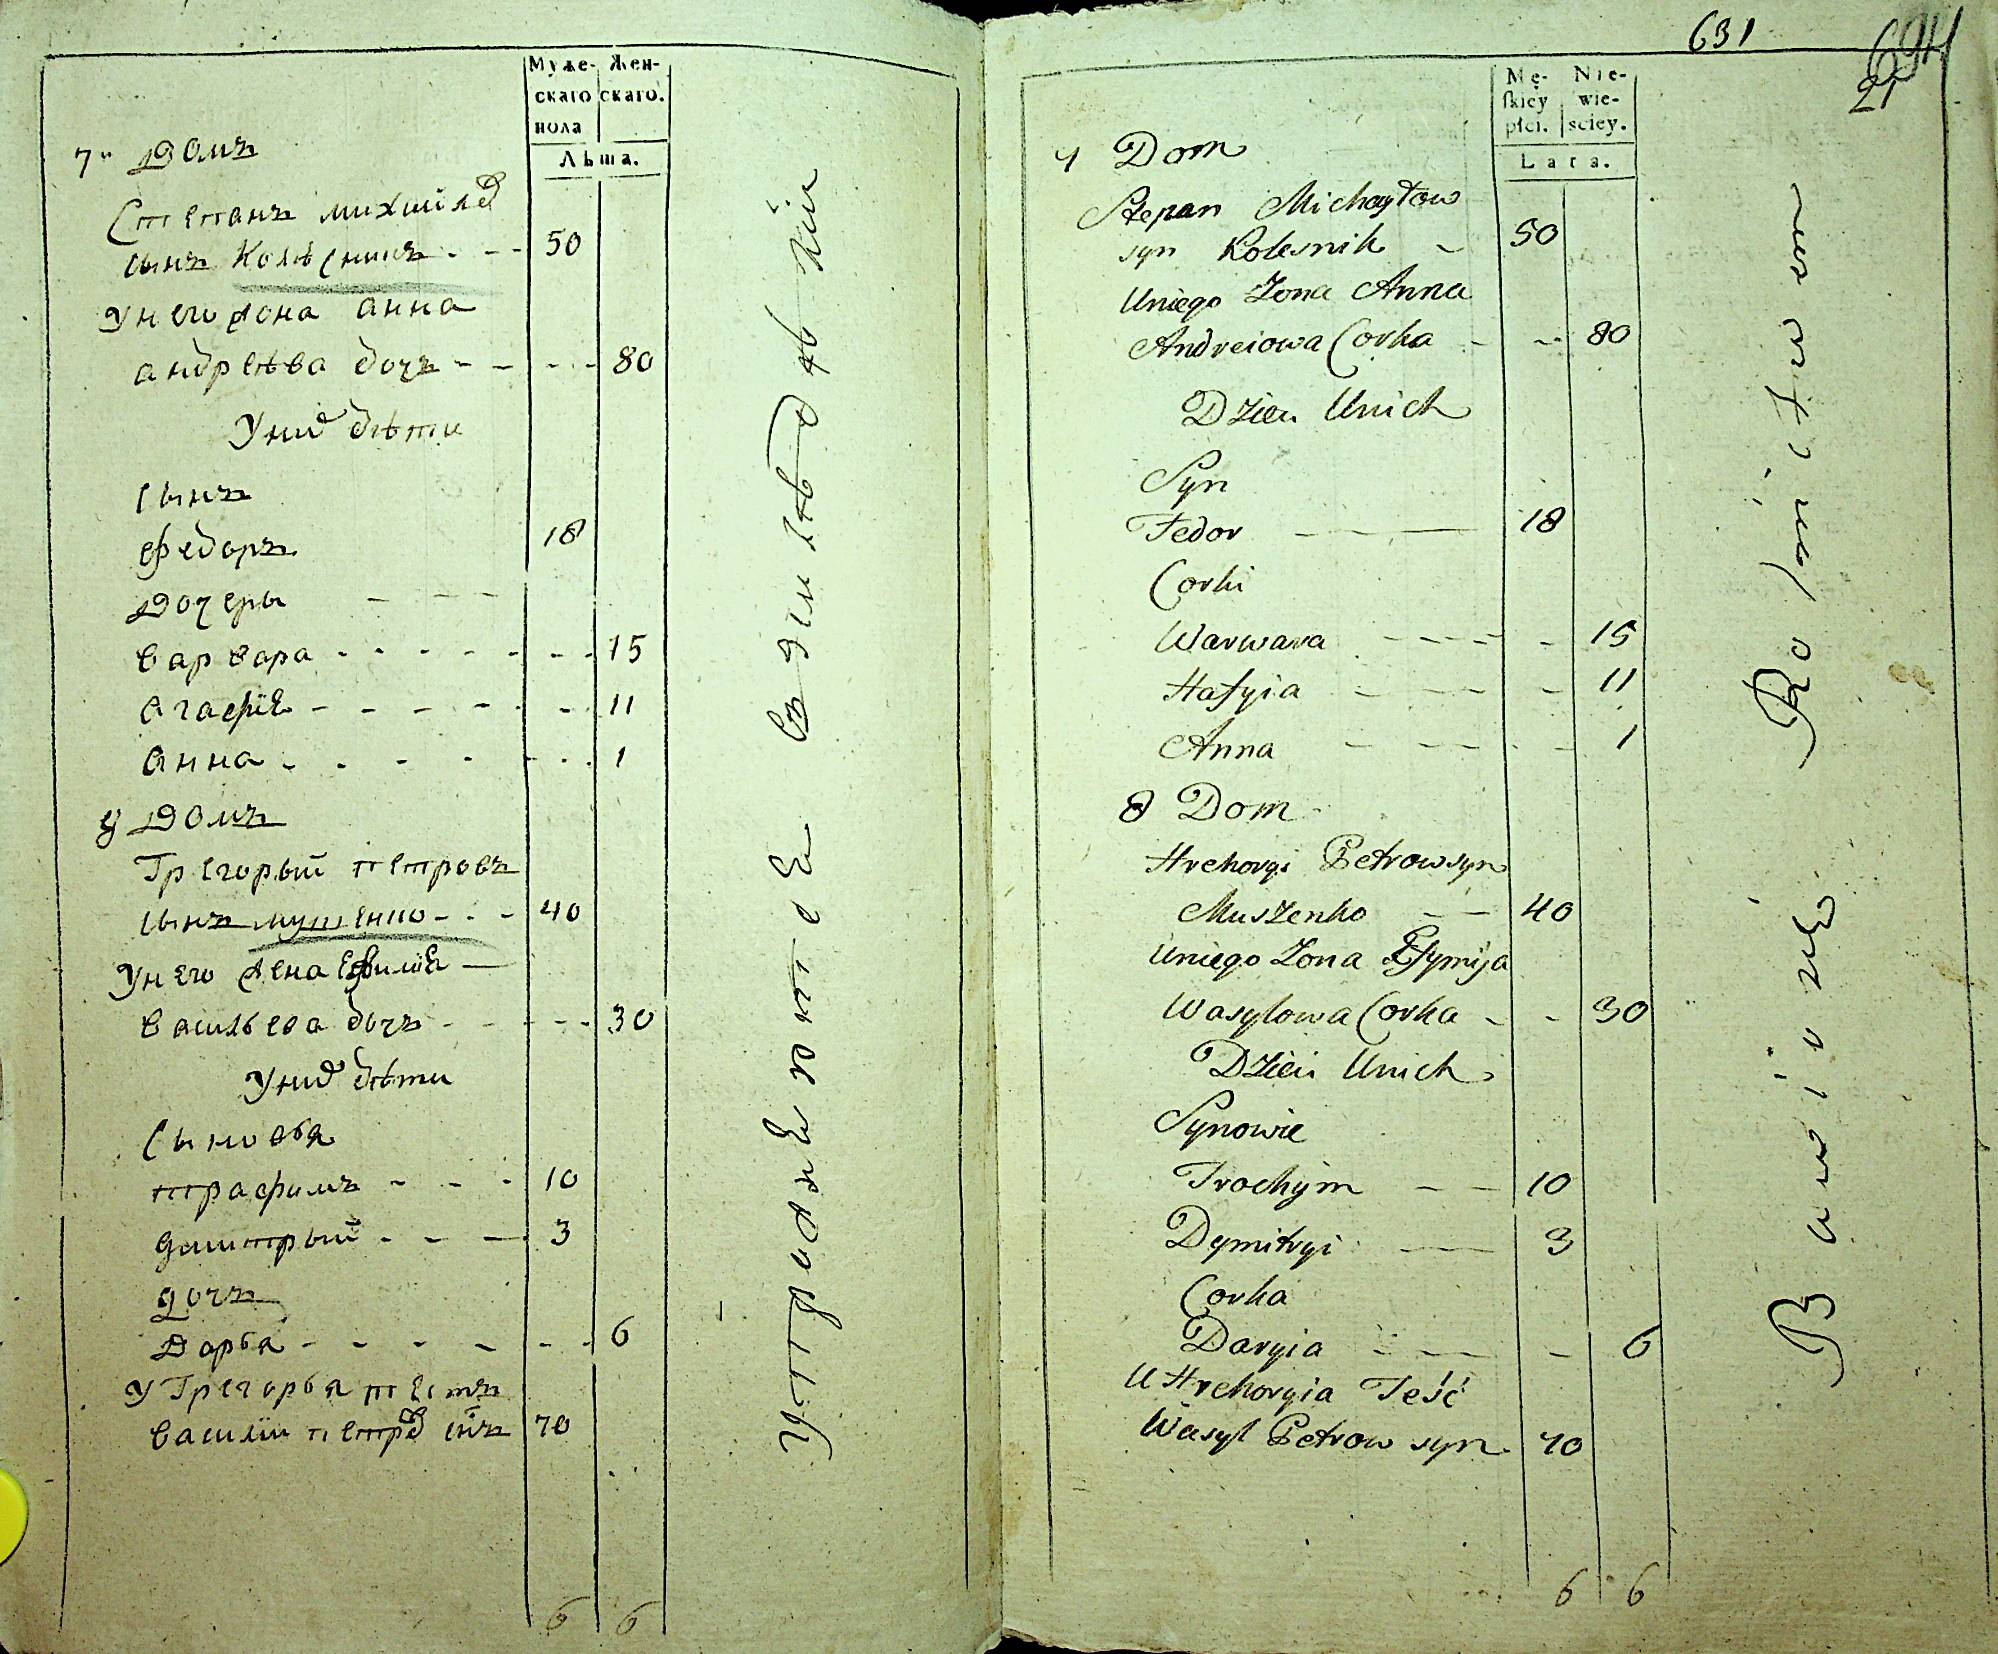 Муже-
скаго
пола
Жен-
скаго.
Лѣта.
7й Домъ
Степанъ михайлов
сынъ Колѣсникъ - - - 50
У него жона анна
андрѣева дочъ - - - - 80
У них дѣти
сынъ
федоръ 18
Дочеры - - -
варвара - - - - - - - 15
агафiя - - - - - - 11
анна - - - - - - 1
8 Домъ
Грегорый петровъ
сынъ мушенко - - - 40
У него жена Ефимiя
васильева дочъ - - - - - 30
У них дѣти
Сыновья
трафимъ - - - 10
дмитрый - - - 3
дочъ
Дарья - - - - - - - 6
У Грегорья тесть
василiй петров снъ 70
6 6
упражняются в земледѣлѣствiи
631
694
21
Mę-
skiey
płci.
Nie-
wie-
sciey.
Lata.
7 Dom
Stepan Michayłow
syn Kolesnik - 50
Uniego Zona Anna
Andreiowa Corka - - - 80
Dzieci Unich
Syn
Fedor - - - 18
Corki
Warwara - - - - - 15
Hafyia - - - - 11
Anna - - - - - 1
8 Dom
Hrehoryi Petrow syn
Muszenko - - 40
Uniego Zona Efymija
Wasylowa Corka - - 30
Dzieci Unich
Synowie
Trochym - - - 10
Dymitryi - - 3
Corka
Daryia - - - - 6
U Hrehoryia Teść
Wasyl Petrow syn 70
6 6
Bawią się Rolnictwem